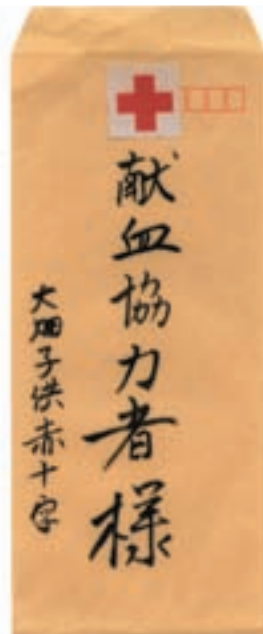 献血協力者様
大畑子供赤十字